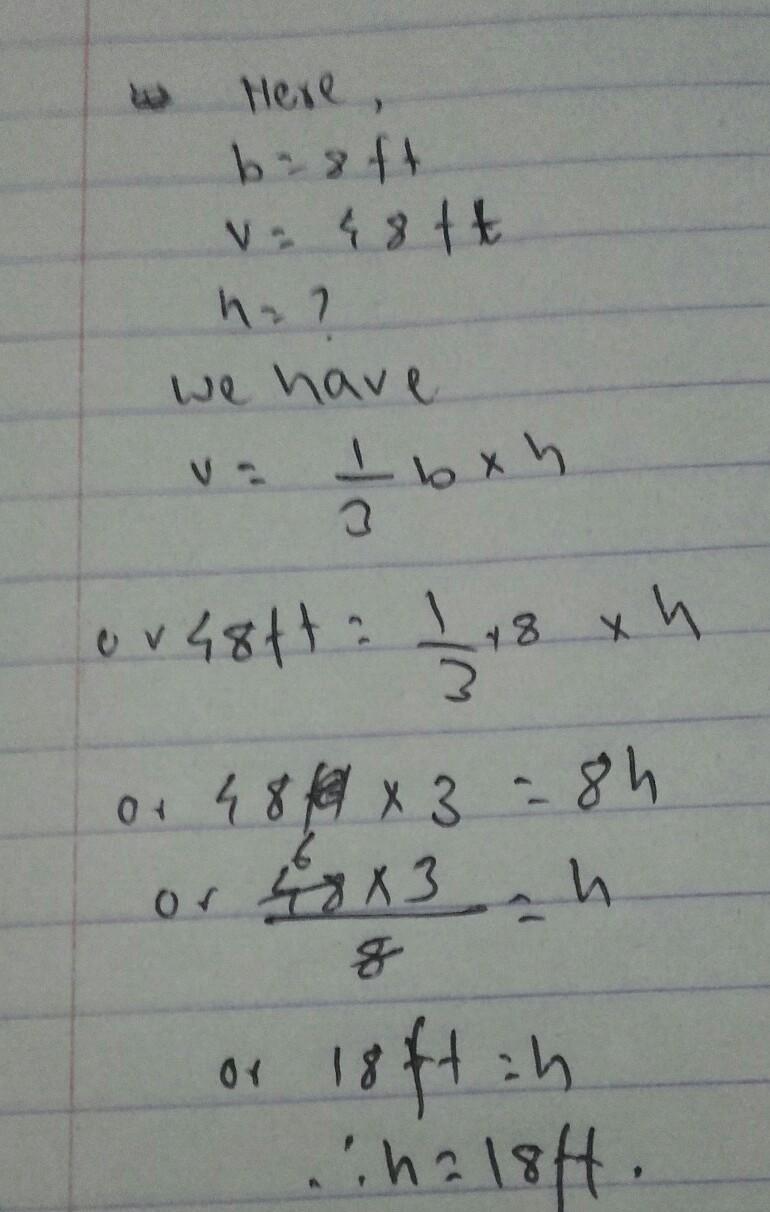 Here,
b = 8 ft
v = 48 ft
h = ?
we have
v = 1/3 b × h
or 48 ft = 1/3 × 8 × h
or 48 × 3 = 8h
or 6 48 × 3 / 8 = h
or 18 ft = h
∴ h = 18 ft.